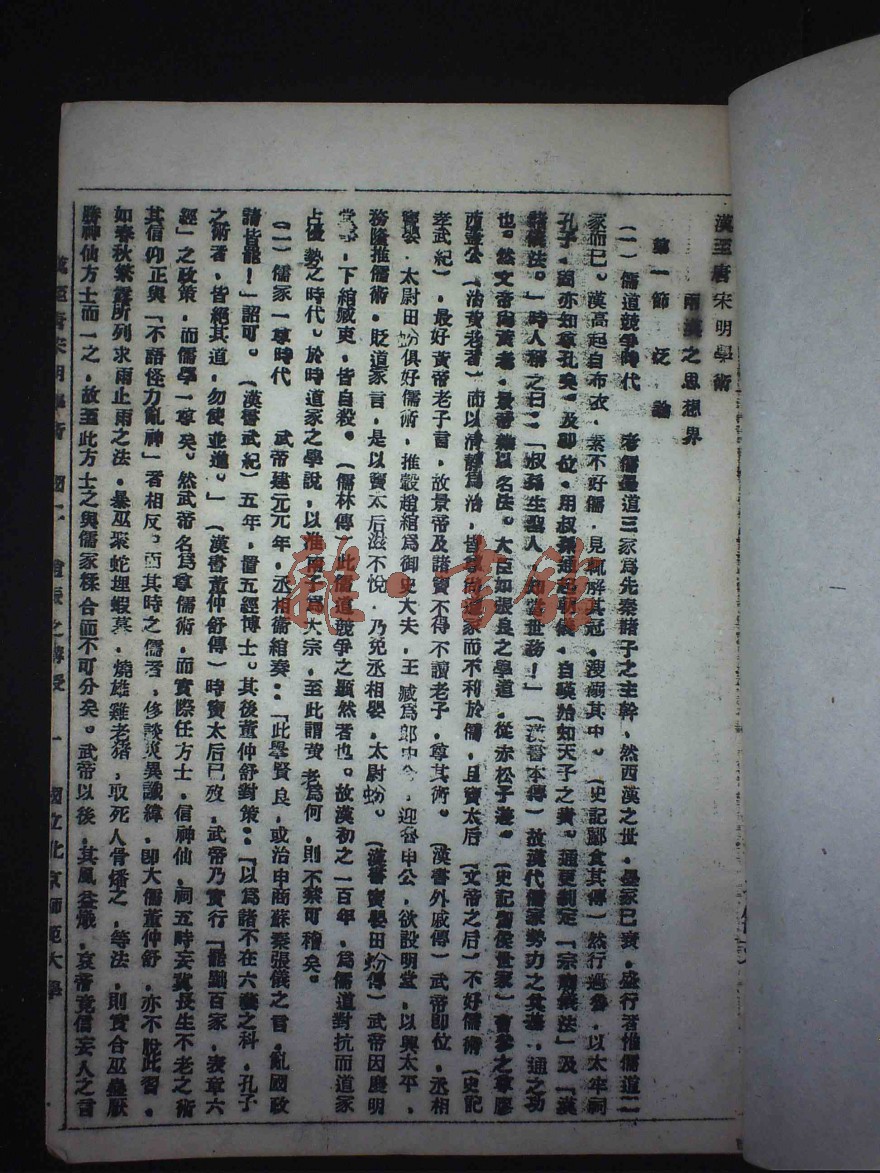 漢至唐宋明學術
兩漢之思想界
第一節 泛論
(一)儒道競爭時代 考儒墨道三家為先秦諸子之主幹,然西漢之世,墨家已衰,盛行者惟儒道二
家而已。漢高起自布衣,素不好儒,見輒解其冠,溲溺其中。(史記酈食其傳)然行過魯,以太牢祠
孔子,固亦知尊孔矣。及即位,用叔孫通起朝儀,自嘆始知天子之貴。通更制定「宗廟儀法」及「漢
諸儀法。」時人稱之曰:「叔孫生聖人,知當世務!」(漢書本傳)故漢代儒家勢力之 通之功
也。然文帝 黃老,景帝 以名法。大臣如張良之學道,從赤松子遊。(史記留侯世家)曹參之尊膠
西蓋公(治黃老者)而以清靜為治,皆尊尚道家而不利於儒,且竇太后(文帝之后)不好儒術(史記
孝武紀),最好黃帝老子言,故景帝及諸竇不得不讀老子,尊其術。(漢書外戚傳)武帝即位,丞相
竇嬰,太尉田蚡俱好儒術,推轂趙綰為御史大夫,王臧為郎中令,迎魯申公,欲設明堂,以興太平,
務隆推儒術,貶道家言,是以竇太后滋不悅,乃免丞相嬰,太尉蚡。(漢書竇嬰田蚡傳)武帝因廢明
堂事,下綰臧吏,皆自殺。(儒林傳)此儒道競爭之顯然者也。故漢初之一百年,為儒道對抗而道家
占優勢之時代。於時道家之學說,以淮南子為大宗,至此謂黃老為何,則不禁可稽矣。
(二)儒家一尊時代 武帝建元元年,丞相衛綰奏:「此舉賢良,或治申商蘇秦張儀之言,亂國政
請皆罷!」詔可。(漢書武紀)五年,置五經博士。其後董仲舒對策:「以為諸不在六藝之科,孔子
之術者,皆絕其道,勿使並進。」(漢書董仲舒傳)時竇太后已歿,武帝乃實行「罷黜百家,表章六
經」之政策,而儒學一尊矣。然武帝名為尊儒術,而實際任方士,信神仙,祠五畤妄冀長生不老之術
其信仰正與「不語怪力亂神」者相反。而其時之儒者,侈談災異讖緯,即大儒董仲舒,亦不脫此習,
如春秋繁露所列求雨止雨之法,暴巫聚蛇埋蝦蟆,燒雄雞老豬,取死人骨燔之,等法,則實合巫蠱厭
勝神仙方士而一之,故至此方士之與儒家糅合而不可分矣。武帝以後,其風益熾,哀帝竟信妄人之言
漢至唐宋明學術 國一 曾 之講授 一 國立北京師範大學
雜·書館